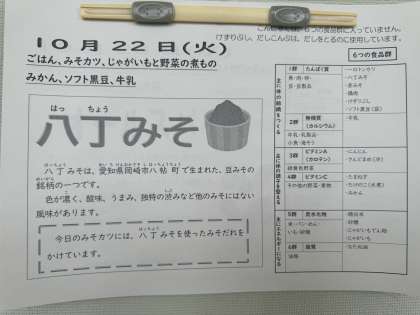 10月22日(火)
ごはん、みそカツ、じゃがいもと野菜の煮もの
みかん、ソフト黒豆、牛乳
はっ ちょう
八丁みそ
八丁みそは、愛知県岡崎市八帖町で生まれた、豆みその
銘柄の一つです。
色が濃く、酸味、うまみ、独特の渋みなど他のみそにはない
風味があります。
今日のみそカツには、八丁みそを使ったみそだれを
かけています。
けずりぶし、だしこんぶは、だしをとるのに使用しています。
6つの食品群
1群 たんぱく質
魚・肉・卵・
豆・豆製品
・八丁みそ
・赤みそ
・けずりぶし
・ソフト黒豆
2群 無機質
(カルシウム)
牛乳・乳製品・
小魚・海そう
・牛乳
3群 ビタミンA
(カロテン)
緑黄色野菜
・にんじん
4群 ビタミンC
その他の野菜・果物
・たまねぎ
・みかん
5群 炭水化物
米・パン・めん・
いも・砂糖
・砂糖
・じゃがいも
6群 脂質
油脂